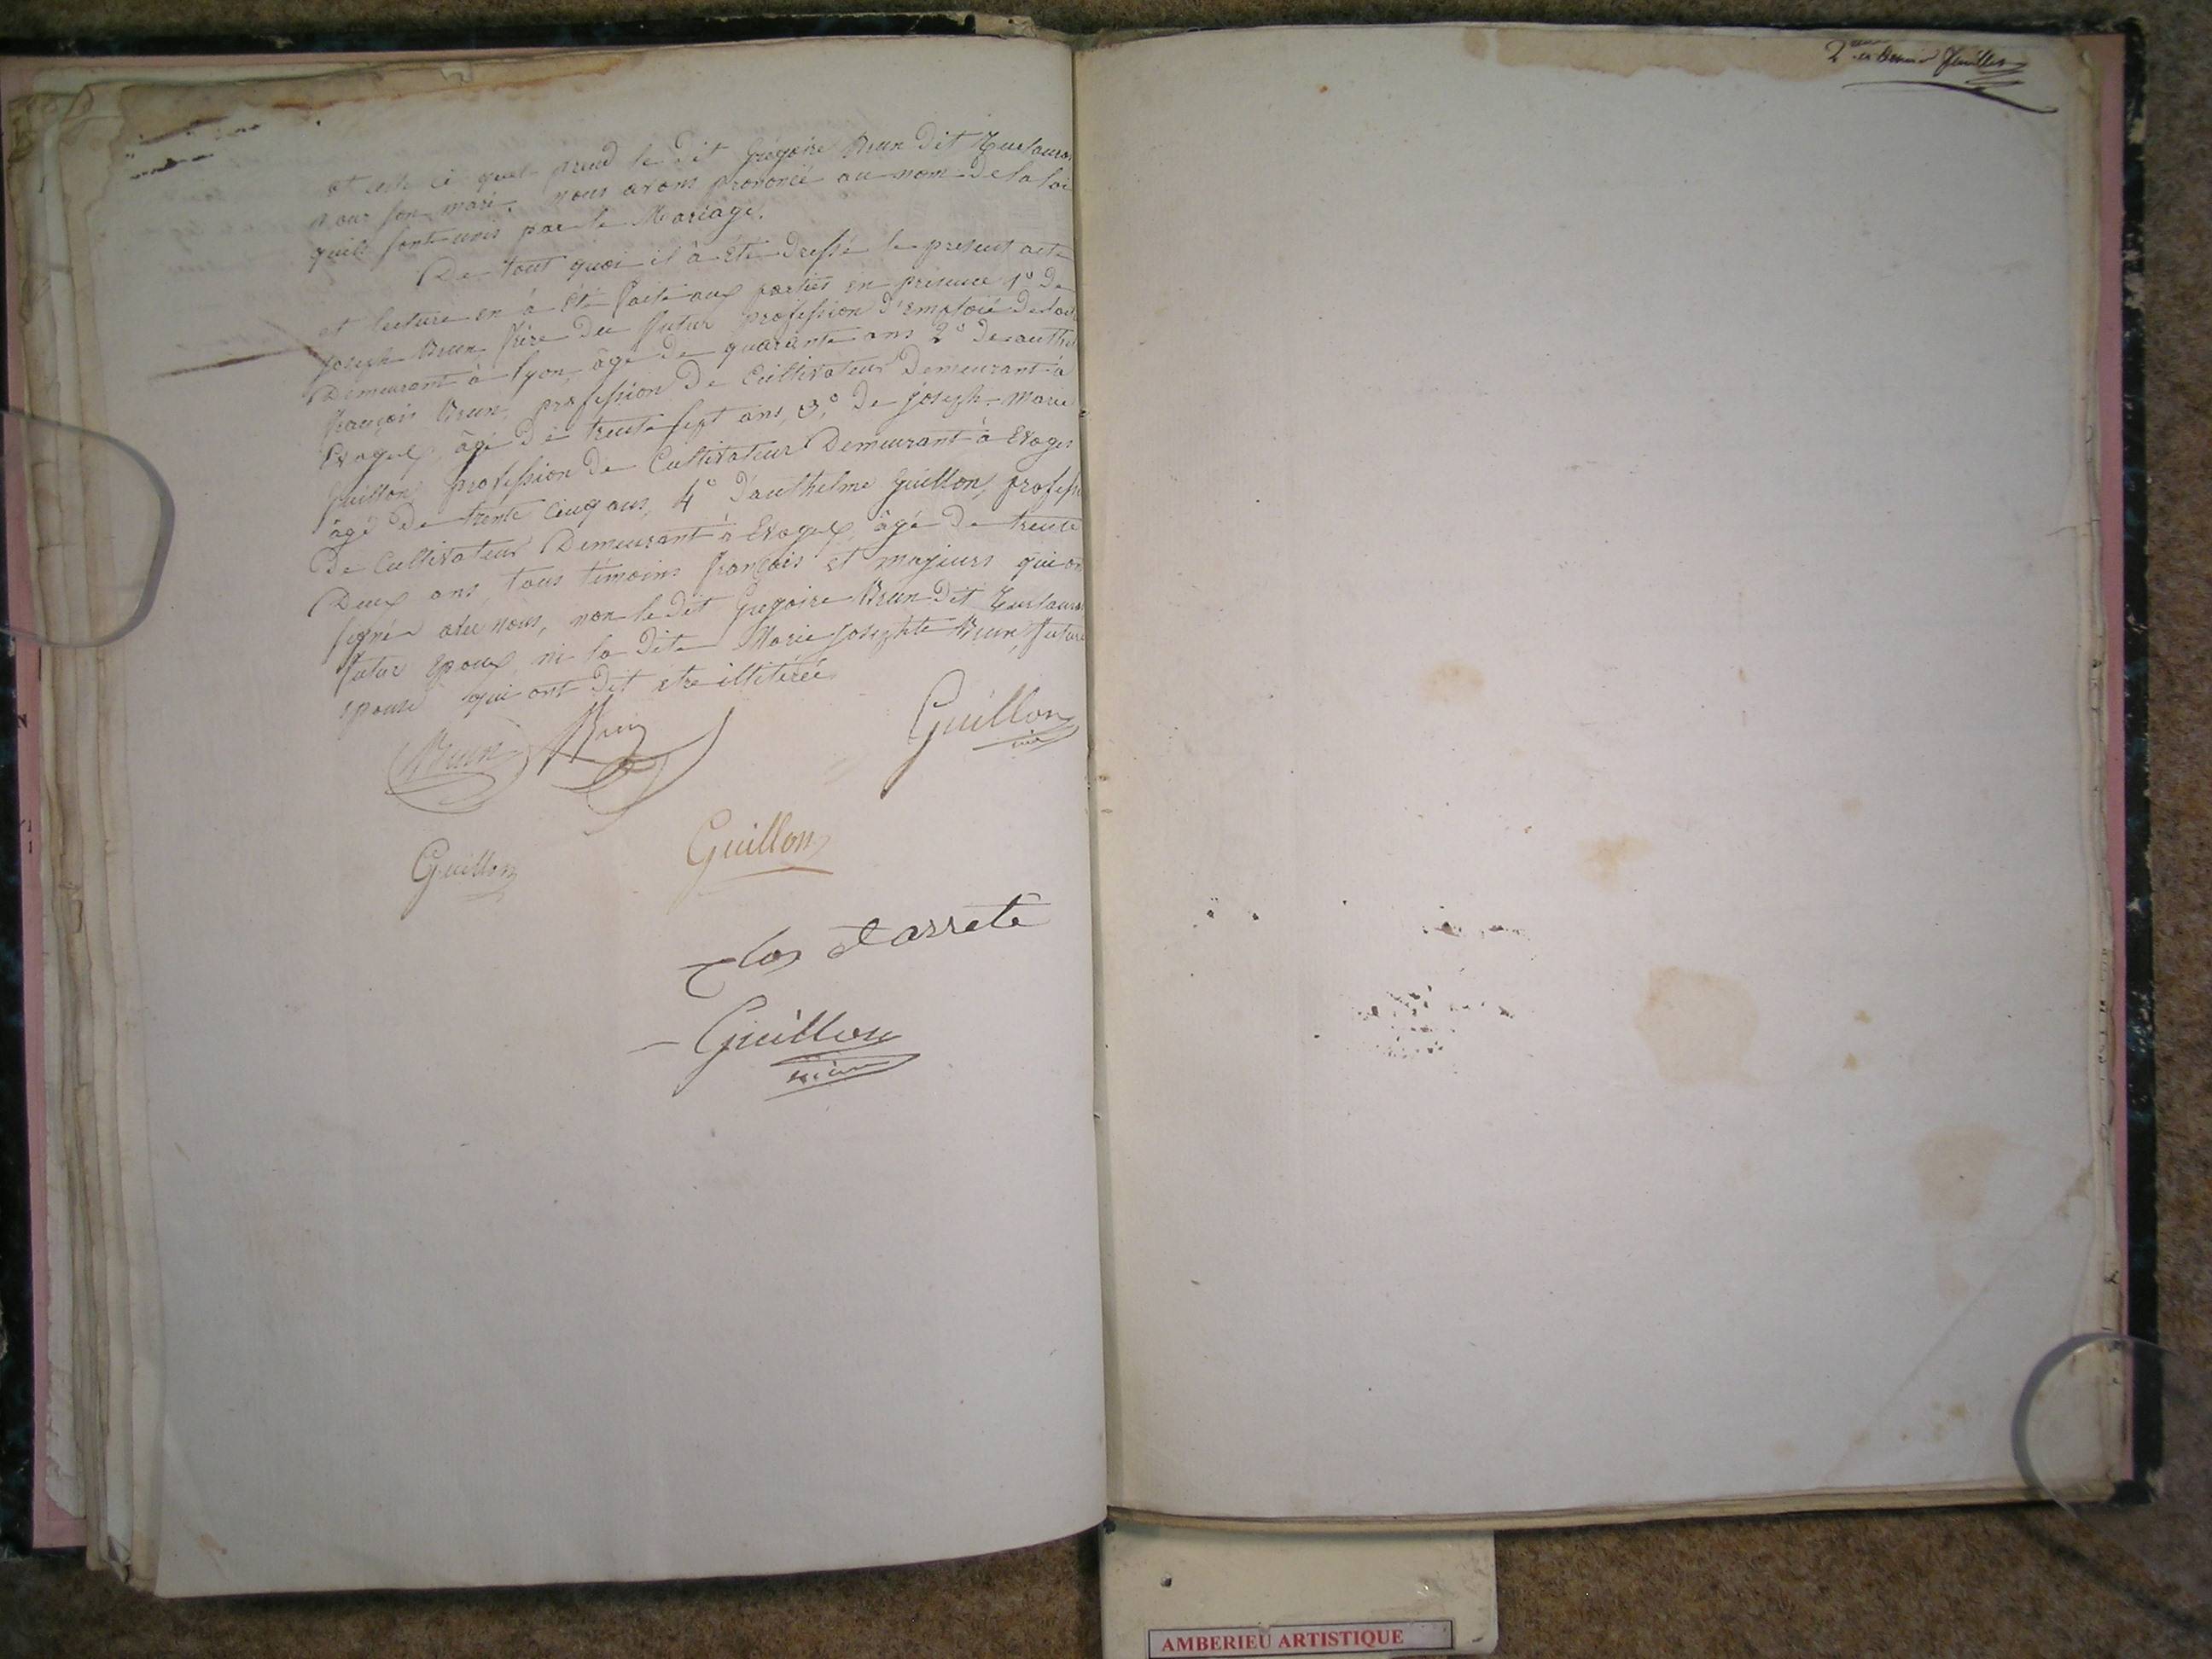 et celle ci quel prend le dit Grégoire Brun dit
pour son mari. nous avons prononcé au nom de la loi
quils sont unis par le Mariage.
De tout quoi il à été dressé le present acte
et lecture en à été faite aux parties en presence 1° De
Joseph Brun frère du futur profession d'emploié
Demeurant à Lyon, âgé de quarante ans 2° De
françois Brun, profession De Cultivateur Demeurant à
Evoges, âgé De trente sept ans, 3.° De joseph Marie
Guillon, profession De Cultivateur Demeurant à Evoges
âgé De trente cinq ans, 4° d'anthelme Guillon, professi
De Cultivateur Demeurant à Evoges, âgé De trente
Deux ans, tous témoins français et majeurs qui on
signés avec nous, non le dit Gregoire Brun dit
futur Epoux, ni la Dite Marie Josephte Brun, future
epouse qui ont Dit etre illitérée
Brun Brun Guillon
Guillon Guillon
Clos et arrete
Guillon
maire
2 et dernier feuillet
AMBERIEU ARTISTIQUE